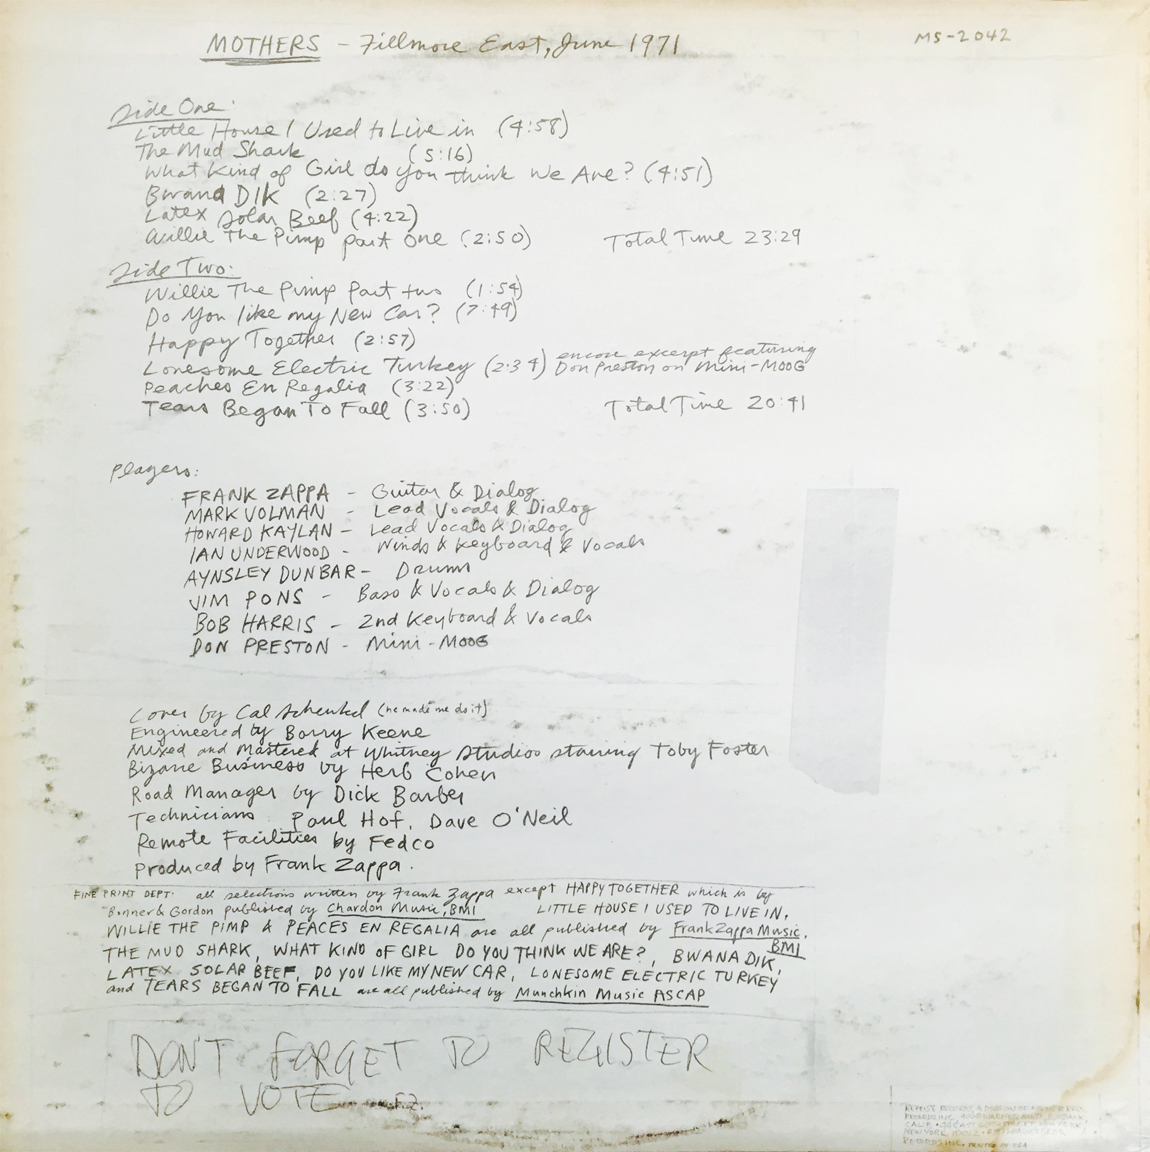 MOTHERS - Fillmore East, June 1971
MS-2042
Side One:
Little House I Used to Live in (4:58)
The Mud Shark (5:16)
What Kind of Girl do you think We Are? (4:51)
Bwana DIK (2:27)
Latex Solar Beef (4:22)
Willie The Pimp part One (2:50) Total Time 23:29
Side Two:
Willie The Pimp Part two (1:54)
Do You like my New Car? (7:49)
Happy Together (2:57)
Lonesome Electric Turkey (2:34) encore excerpt featuring
Don Preston on Mini-MOOG
Peaches En Regalia (3:22)
Tears Began To Fall (3:50) Total Time 20:41
Players:
FRANK ZAPPA - Guitar & Dialog
MARK VOLMAN - Lead Vocals & Dialog
HOWARD KAYLAN - Lead Vocals & Dialog
IAN UNDERWOOD - Winds & Keyboard & Vocals
AYNSLEY DUNBAR - Drums
JIM PONS - Bass & Vocals & Dialog
BOB HARRIS - 2nd Keyboard & Vocals
DON PRESTON - Mini-MOOG
Cover by Cal Schenkel (he made me do it)
Engineered by Barry Keene
Mixed and Mastered at Whitney Studios starring Toby Foster
Bizarre Business by Herb Cohen
Road Manager by Dick Barber
Technicians: Paul Hof, Dave O'Neil
Remote Facilities by Fedco
Produced by Frank Zappa.
FINE PRINT DEPT. all selections written by Frank Zappa except HAPPY TOGETHER which is by
Bonner & Gordon published by Chardon Music, BMI LITTLE HOUSE I USED TO LIVE IN,
WILLIE THE PIMP & PEACES EN REGALIA are all published by Frank Zappa Music,
BMI
THE MUD SHARK, WHAT KIND OF GIRL DO YOU THINK WE ARE?, BWANA DIK,
LATEX SOLAR BEEF, DO YOU LIKE MY NEW CAR, LONESOME ELECTRIC TURKEY
and TEARS BEGAN TO FALL are all published by Munchkin Music ASCAP
DON'T FORGET TO REGISTER
TO VOTE F.Z.